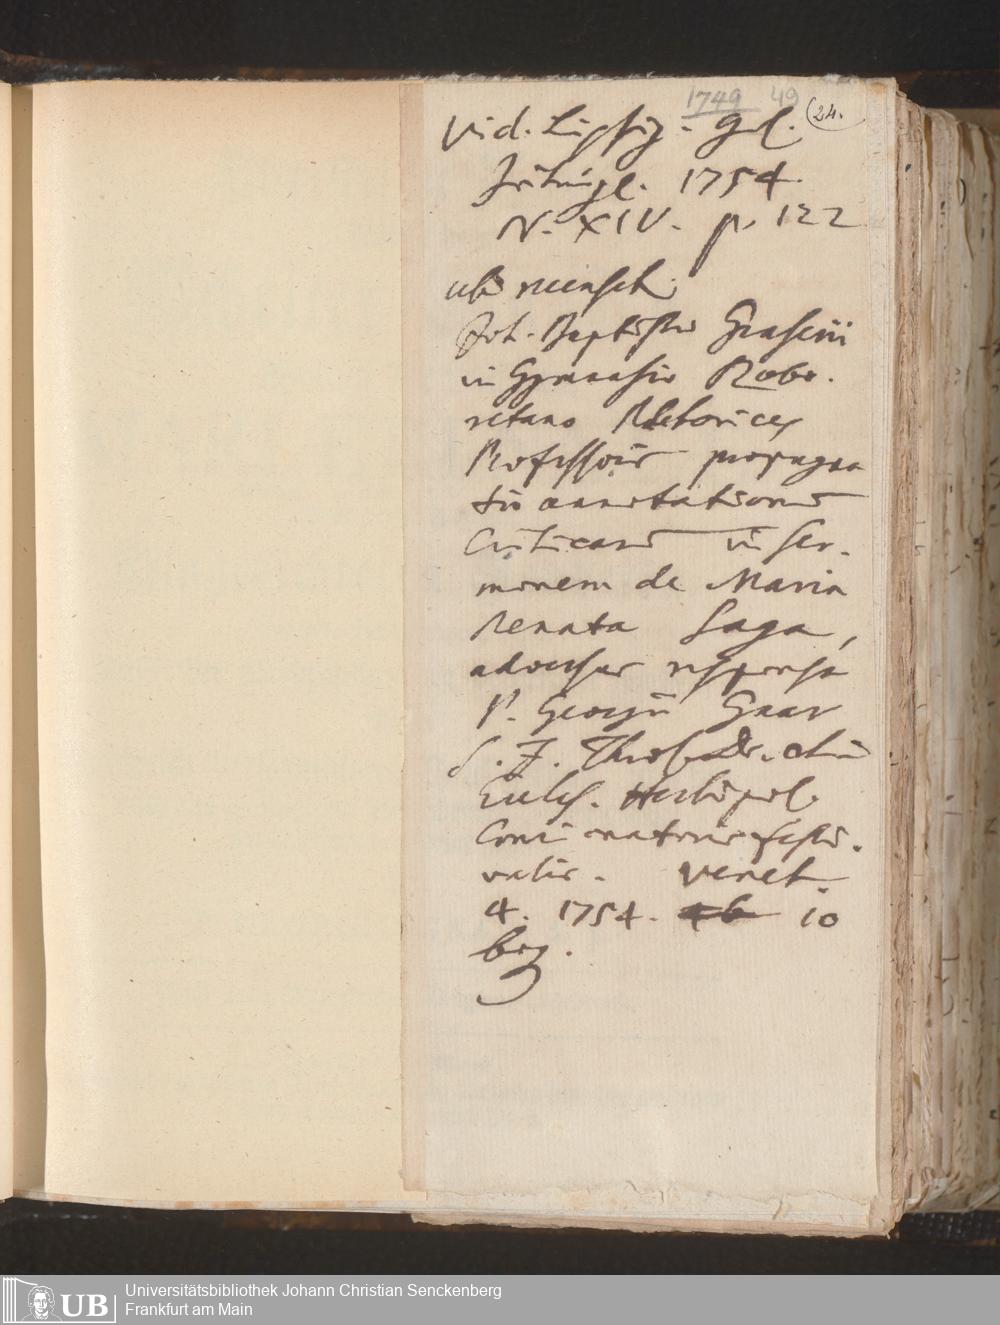 1749 49 (24.
Vid. Lipsig. Gel.
Zeitunge. 1754.
N. XIV. p. 122
ubi recenset.
Joh. Baptistae Graserii
in Gymnasio Robo-
retano Rhetorices
Professoris propugna
tio annotationum
Criticarum in Ser-
monem de Maria
Renata Saga,
adversus responsa
P. Georgii Gaar
S. J. Theol. Dr. olim
Eccles. Herbipol.
Concionatoris festi-
valis. Venet.
4. 1754. 10
bog.
UB
Universitätsbibliothek Johann Christian Senckenberg
Frankfurt am Main